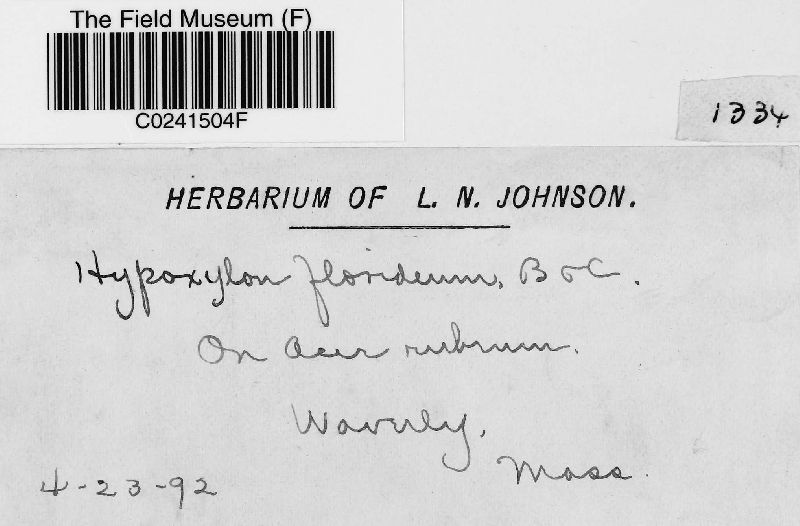 The Field Museum (F)
C0241504F
1334
HERBARIUM OF L. N. JOHNSON.
Hypoxylon florideum, B & C.
On Acer rubrum.
Waverly,
Mass.
4-23-92